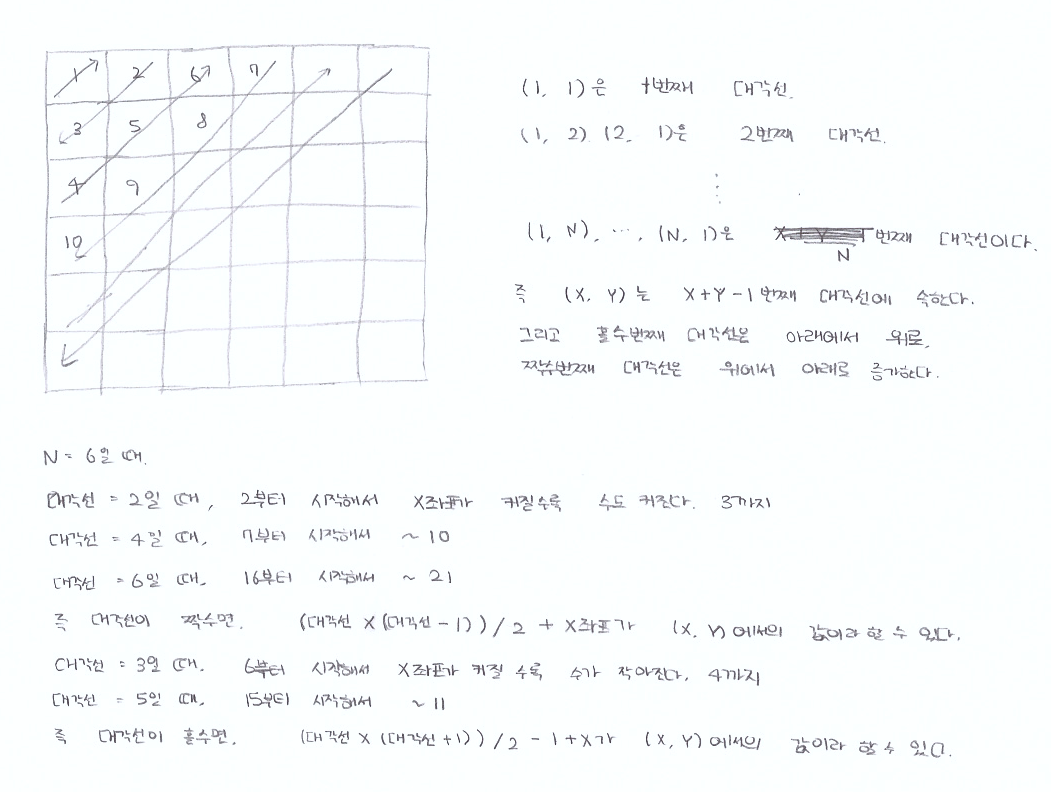 1 2 6 7
3 5 8
4 9
10
(1, 1)은 1번째 대각선.
(1, 2), (2, 1)은 2번째 대각선.
⋮
(1, N), ⋯, (N, 1)은 N번째 대각선이다.
즉 (X, Y)는 X+Y-1번째 대각선에 속한다.
그리고 홀수번째 대각선은 아래에서 위로,
짝수번째 대각선은 위에서 아래로 증가한다.
N = 6일 때.
대각선 = 2일 때, 2부터 시작해서 X좌표가 커질수록 수도 커진다. 3까지
대각선 = 4일 때, 7부터 시작해서 ~ 10
대각선 = 6일 때, 16부터 시작해서 ~ 21
즉 대각선이 짝수면, (대각선 X (대각선 - 1)) / 2 + X좌표가 (X, Y)에서의 값이라 할 수 있다.
대각선 = 3일 때, 6부터 시작해서 X좌표가 커질 수록 수가 작아진다. 4까지
대각선 = 5일 때, 15부터 시작해서 ~ 11
즉 대각선이 홀수면, (대각선 X (대각선 + 1)) / 2 - 1 + X가 (X, Y)에서의 값이라 할 수 있다.